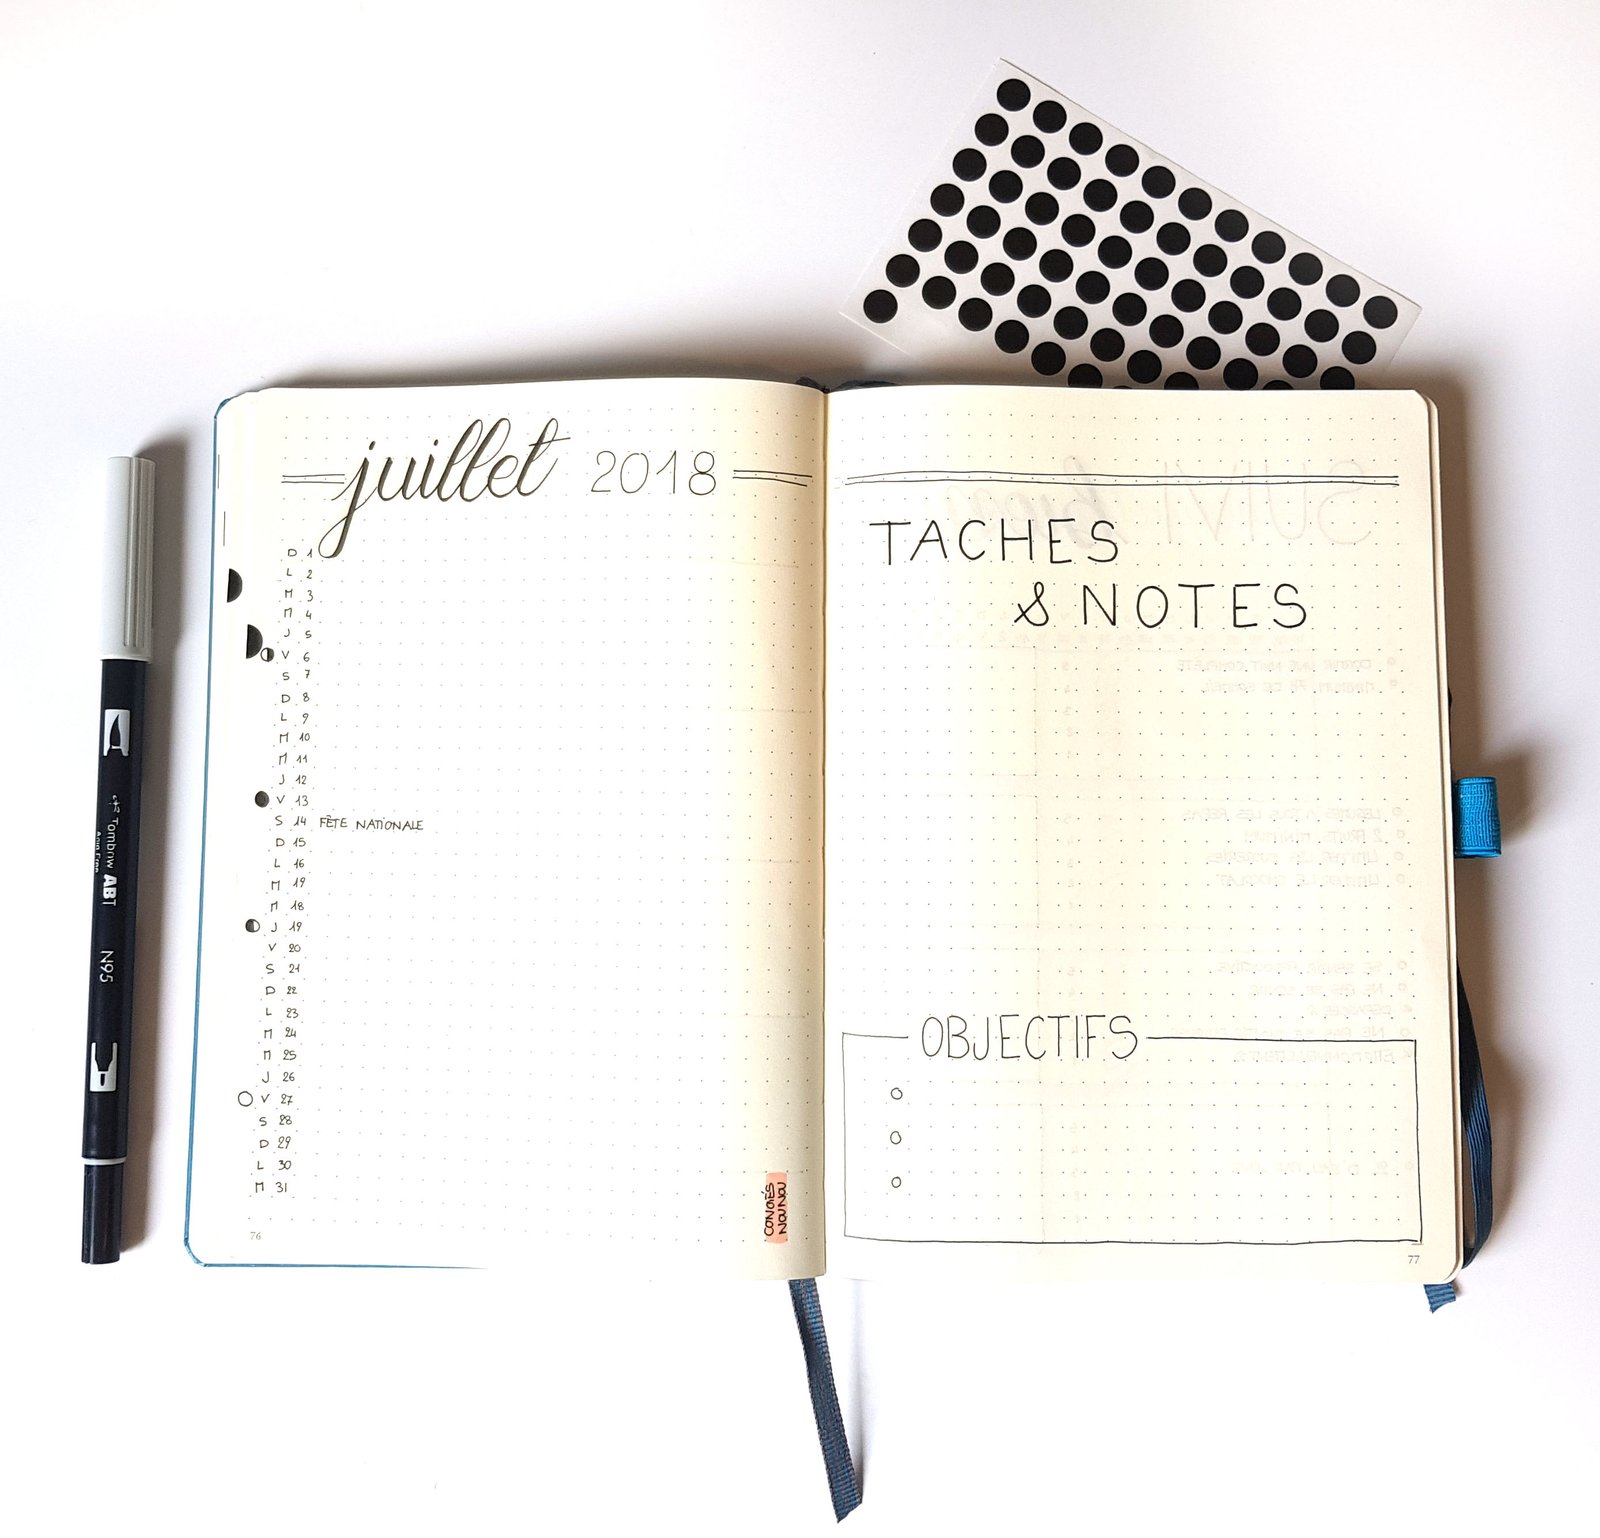 juillet 2018
D 1
L 2
M 3
M 4
J 5
V 6
S 7
D 8
L 9
M 10
M 11
J 12
V 13
S 14 FÊTE NATIONALE
D 15
L 16
M 19
M 18
J 19
V 20
S 21
D 22
L 23
M 24
M 25
J 26
V 27
S 28
D 29
L 30
M 31
CONGÉS
NOUNOU
76
TACHES
& NOTES
OBJECTIFS
77
Tombow ABT N95